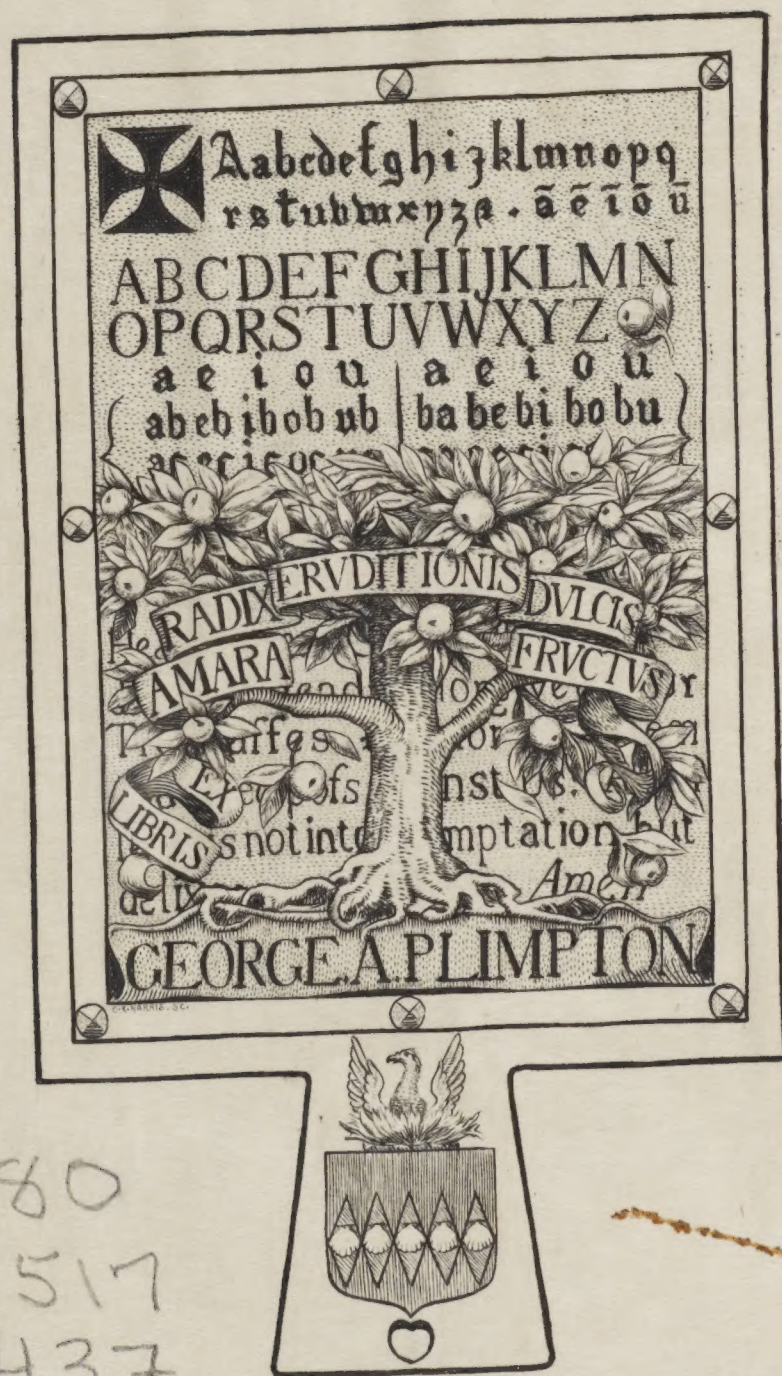 Aabcdefghijklmnopq
rstuvwxyz&. ã ẽ ĩ õ ũ
ABCDEFGHIJKLMN
OPQRSTUVWXYZ
a e i o u | a e i o u
ab eb ib ob ub | ba be bi bo bu
RADIX ERVDITIONIS DVLCIS
AMARA FRVCTVS
EX
LIBRIS
s not into mptation but
Amen
GEORGE.A.PLIMPTON
80
517
437